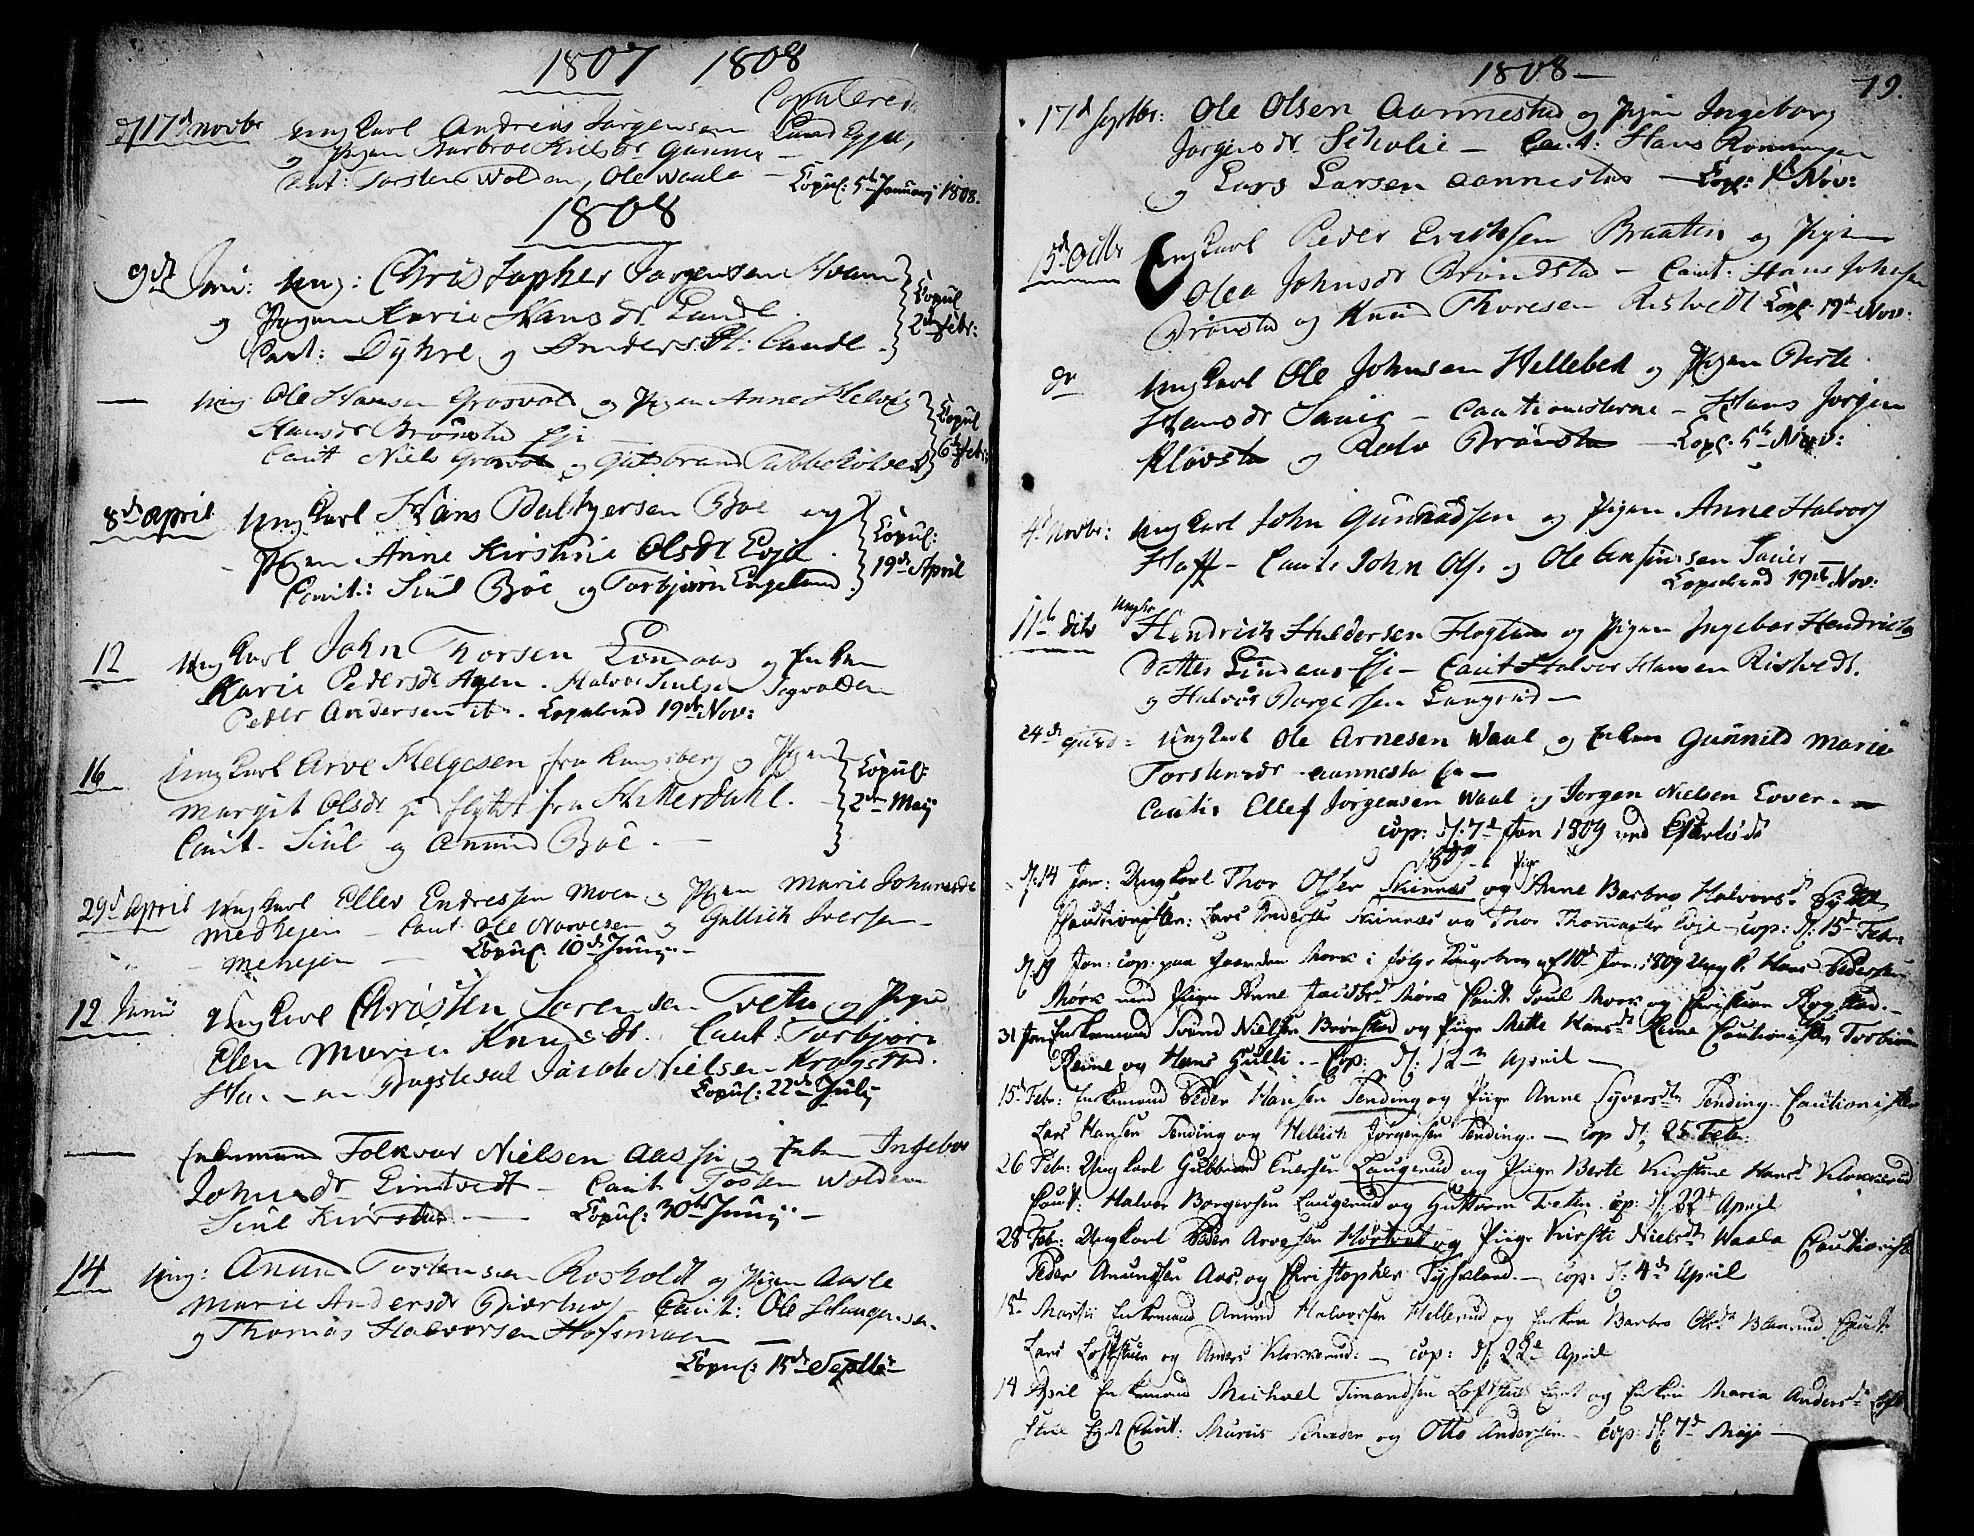 1807 1808
Copulerede
d 17d novbr ungkarl Andreas Jørgensen Lund Eyje,
og Pigen Barbroe Nielsdr Gunnes
Caut: Torsten Wolden, Ole Waala — Copul: 5te Januarj 1808.
1808
9de Jan: ung: Christopher Jørgensen Moen
og Pigen Karie Hansdr Lande.
Caut: Dyhre og Anders Lande.
Copul 2den Febr:
— ung Ole Hansen Grosvold og Pigen Anne Helvig
Hansdr Brønstad Eje
Caut Niels Grosvold og Gulbrand Tubbekølven
Copul 6te Febr:
8de april ungkarl Hans Balthersen Boe og
Pigen Anne Kirstine Olsdr Evje.
Caut: Siul Boe og Torbjørn Engelund.
Copul: 19de April
12 ungkarl John Thorsen Lindaas og Enken
Karie Pedersdr Hagen. Halvor Siulsen Tegvolden
Peder Andersen ib. Copulered 19de Nov:
16 ungkarl Arve Helgesen fra Kongsberg og Pigen
Margit Olsdr flytt fra Hitterdahl.
Caut. Siul og Anund Boe. —
Copul: 2den Maij
29d april ungkarl Ellev Endressen Moen og Pigen Marie Johannesdr
Medhejen — Caut Ole Narvesen og Gullich Iversen
Mehejen — Copul: 10de Junij —
12 Junii ungkarl Christen Sørensen Tveten og Pigen
Elen Marie Knudsdr. Caut: Torbjørn
Hansen Jacob Nielsen Kragstad.
Copul: 22de Julij
— Enkemand Folkvar Nielsen Aasse og Enken Ingebor
Johnsdr Lindtvedt — Caut Tosten Wolden
Siul Kirrstue — Copul: 30te Junij —
14 ung: Anund Tostensen Rosholdt og Pigen Aasle
Marie Andersdr — Caut: Ole Haagensen
og Thomas Halvorsen Hofsmoen —
Copul: 15de Septbr
1808 — 19.
17d Septbr: Ole Olsen Aannestad og Pigen Ingeborg
Jørgensdr Scholie — Caut: Hans Rønningen
og Lars Larsen Aannestad — Cop: 1te Nov:
15d Octbr Ungkarl Peder Erichsen Braaten og Pigen
Olea Johnsdr Brøndstad — Caut: Hans Johnsen
Brønstad og Knud Thoresen Ristvedt Cop: 19de Nov:
do Ungkarl Ole Johnsen Hellebek og Pigen Berte
Hansdr Sauer — Cautionisterne — Hans Jørgen
Kløvstad og Rolv Brønstad — Cop: 5te Nov:
4d Novbr: Ungkarl John Gunnuldsen og Pigen Anne Halvors
Hoff — Caut: John Ols: og Ole Anfinnsen Sauer —
Copulered 19de Nov:
11te dito Ungkr Hendrich Huldersen Flogtun og Pigen Ingebor Hendrichs
datter Lindaas Eje — Caut Halvor Hansen Ristvedt.
og Halvor Borgersen Langerud —
24de ejusd: Ungkarl Ole Arnesen Waal og Enken Gunnild Marie
Torstensdr Aannestad Eje —
Caut: Ellef Jørgensen Waal og Jørgen Nielsen Evver. —
cop: d: 7de Jan 1809 ved Efterteste
1809
d: 14 Jan: Ungkarl Thor Olsen Skinnes og Pige Anne Barbro Halvorsd
Cautionister: Lars Andersen Skinnes og Thor Thommesen Evje — cop: d: 15d Febr:
d: 19 Jan: cop: paa Grunden Mork i følge Kongebrev af 10d Jan: 1809 Ungk. Hans Pedersen
Mørk med Pigen Anne Jacobsd Mørk Caut: Poul Mork og Christian Rygstad. —
31 Jan Enkemand Svend Nielsen Brønstad og Pige Mette Hansd Reine Cautionister Torbiørn
Reine og Hans Gulli. — Cop: d: 12te April —
15d Febr: Enkemand Peder Hansen Tending og Pige Anne Syversdr Tending. Cautionister
Lars Hansen Tending og Hellich Jørgensen Tending. — cop d: 25 Febr:
26 Febr: Ungkarl Gulbrand Evensen Langerud og Pige Berte Kirstine Hansd Klokkerud
Caut: Halvor Borgersen Langerud og Guttorm Tveten. cop: d: 22d April
28 Febr: Ungkarl Peder Arvesen Hostvedt og Pige Kirsti Nielsd Waala Cautionister
Peder Anundsen Aas. og Christopher Tyskeland. — cop: d: 4de April
15te Martii Enkemand Anund Halvorsen Hellerud og Enken Barbro Olsd Blamrud Caut:
Lars Løfstuen og Anders Klokkerud: — cop: d: 22d April
14 April Enkemand Michael Simondsen Løfstue Eget og Enken Maria Andersd Løft
stue Eget Caut: Marius og Otto Andersen. cop: d: 7de Maji —